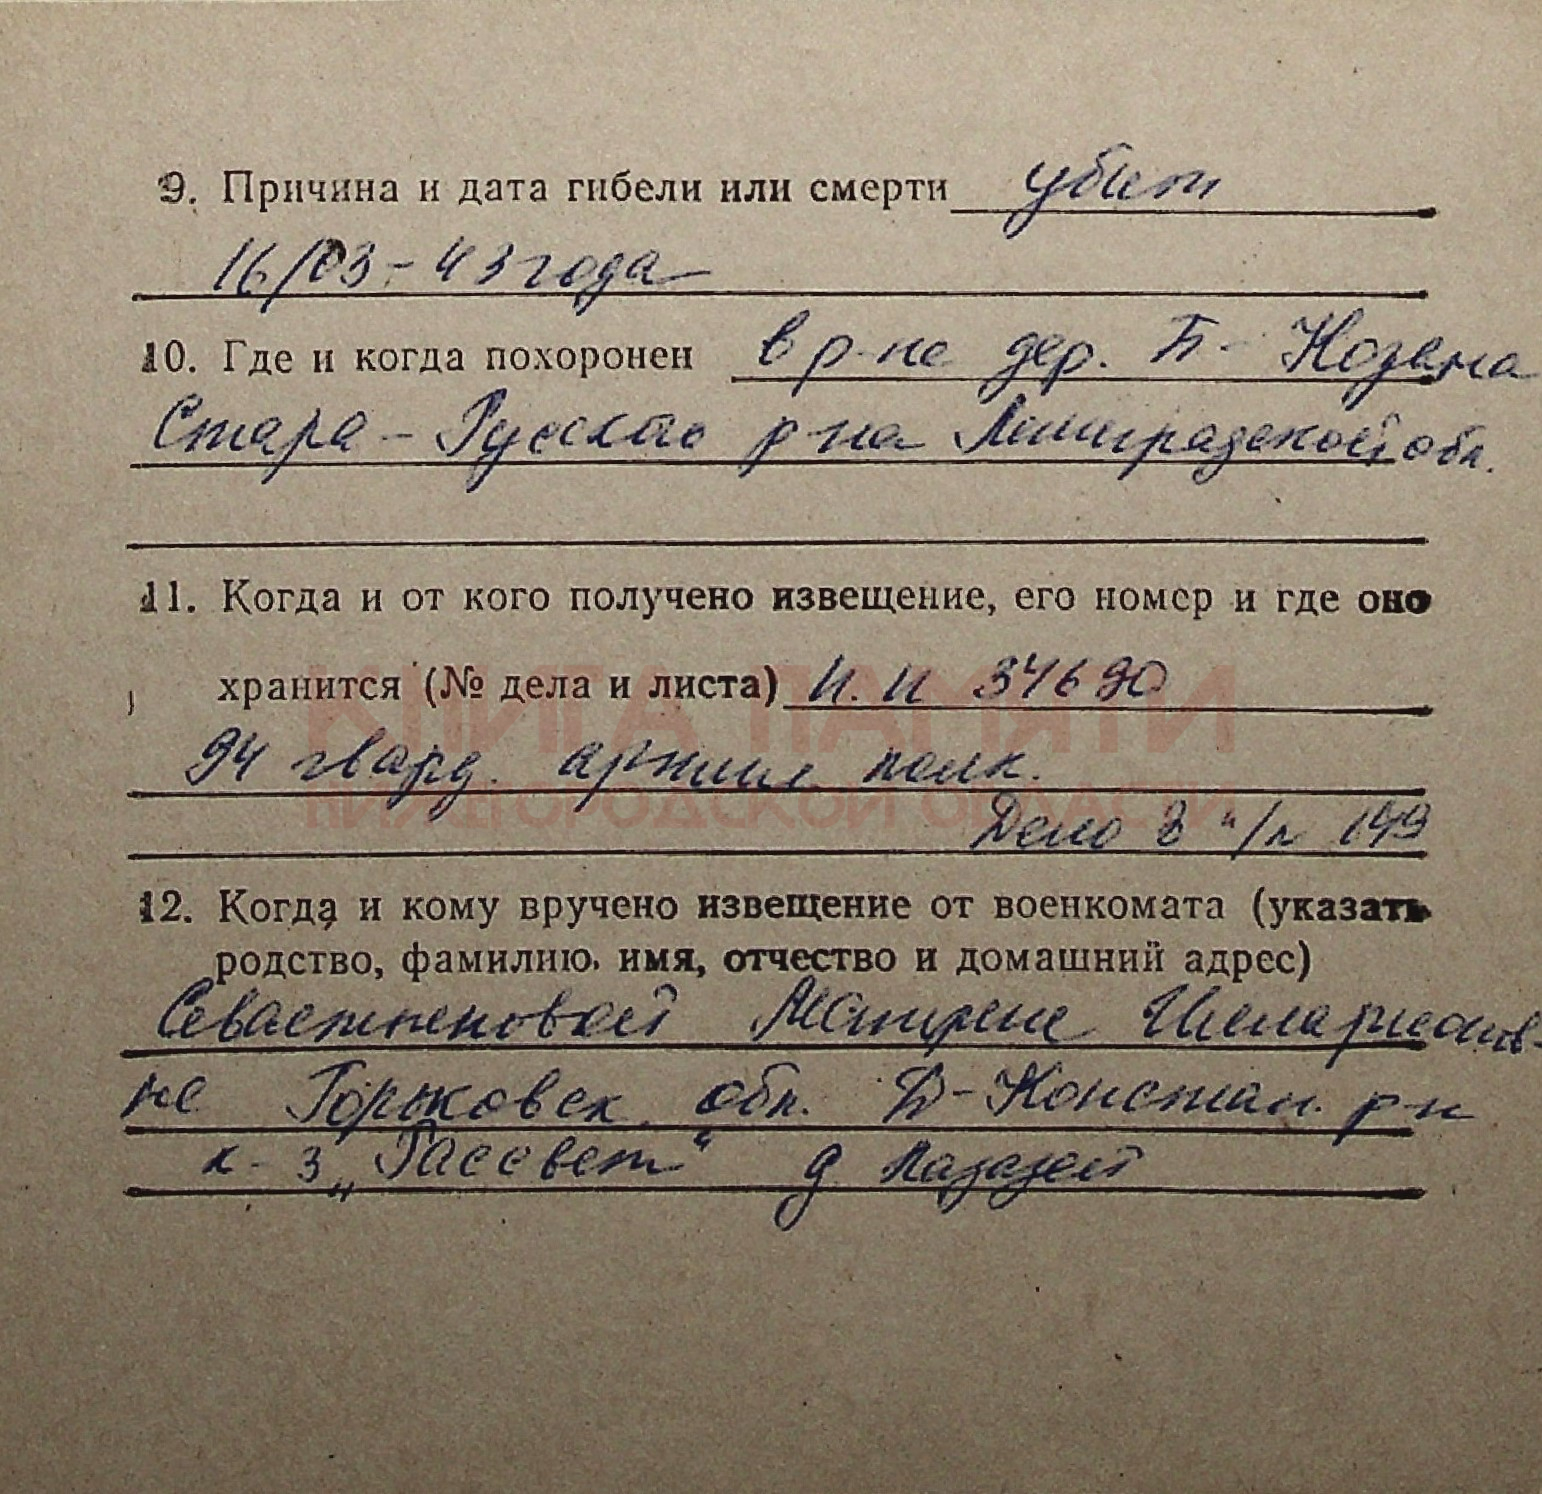 9. Причина и дата гибели или смерти убит
16/03-43 года
10. Где и когда похоронен в р-не дер. Б- Козена
Стара - Русская р-на Ленинградской обл.
11. Когда и от кого получено извещение, его номер и где оно
хранится (№ дела и листа) П. П 34690
КНИГА ПАМЯТИ
94 гвард. артилл полк.
НИЖЕГОРОДСКОЙ ОБЛАСТИ
Дело 8 "/л 149
12. Когда и кому вручено извещение от военкомата (указать
родство, фамилию, имя, отчество и домашний адрес)
Севастьяновой Матрене Илларионов-
не Горьковск обл. Д-Констан. р-н
к-з „Рассвет" д